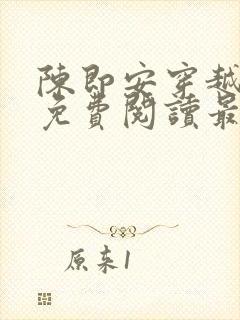 陳即安穿越
免費閱讀最
原来1